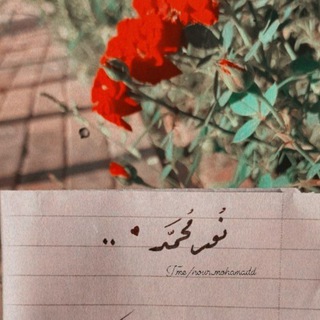 نُور مُحمَّد ♥ ..
T.me/nour_mohamadd